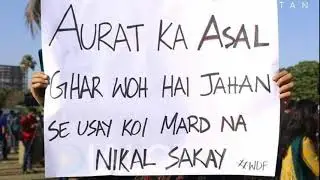 TAN
AURAT KA ASAL
GHAR WOH HAI JAHAN
SE USAY KOI MARD NA
NIKAL SAKAY
#WDF